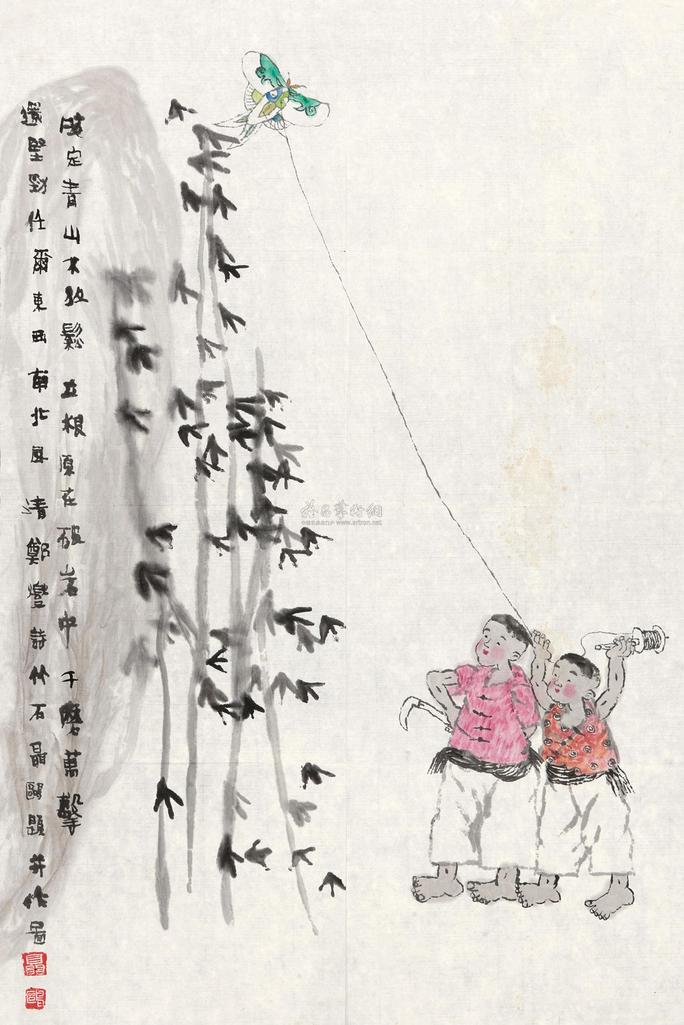 咬定青山不放鬆立根原在破岩中千磨萬擊
還堅勁任爾東西南北風清鄭燮詩竹石聶鷗題并作圖
聶
鷗
www.artron.net